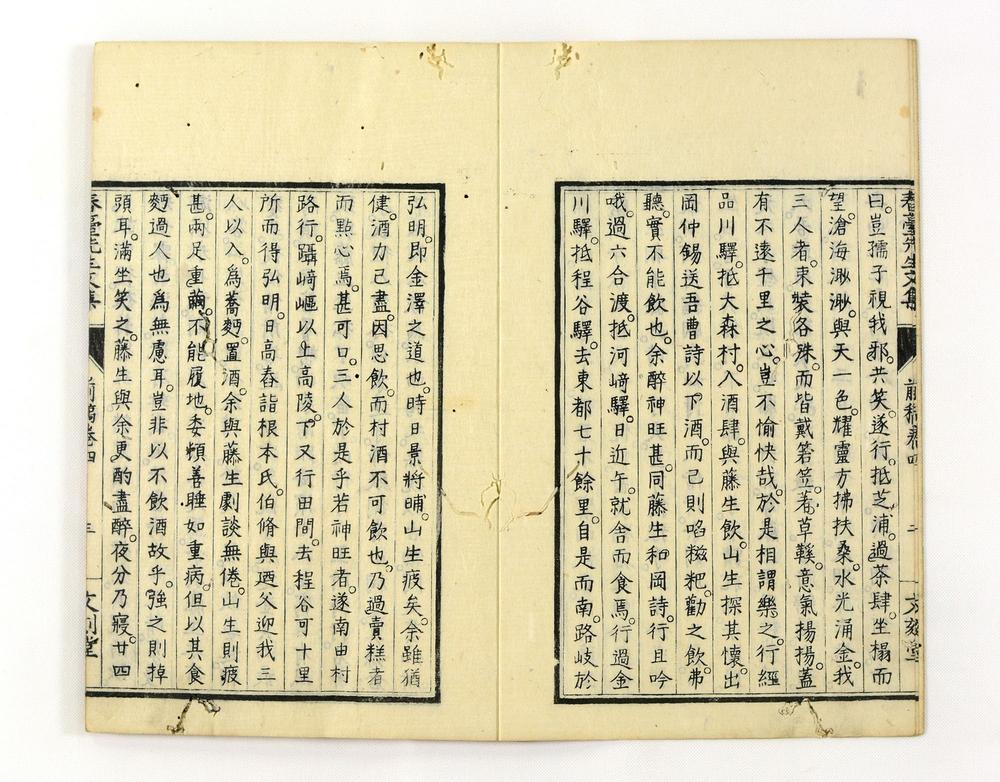 曰。豈孺子視我邪。共笑。遂行。抵芝浦。過茶肆。坐榻而
望滄海。渺渺與天一色。耀靈方拂扶桑。水光涌金。我
三人者。束裝各殊。而皆戴箬笠。著草鞵。意氣揚揚。蓋
有不遠千里之心。豈不愉快哉。於是相謂樂之。行經
品川驛。抵大森村。入酒肆。與藤生飲。山生探其懷。出
岡仲錫送吾曹詩以下酒。而己則啗糍粑。勸之飲。弗
聽。實不能飲也。余醉神旺甚。同藤生和岡詩。行且吟
哦。過六合渡。抵河﨑驛。日近午。就舍而食焉。行過金
川驛。抵程谷驛。去東都七十餘里。自是而南。路岐於
春臺先生文集
前稿卷四
二
文刻堂
弘明。即金澤之道也。時日景將晡。山生疲矣。余雖猶
健。酒力已盡。因思飲。而村酒不可飲也。乃過賣糕者
而點心焉。甚可口。三人於是乎若神旺者。遂南由村
路行。躡﨑嶇以上高陵。下又行田間。去程谷可十里
所而得弘明。日高舂詣根本氏。伯脩與迺父迎我三
人以入。為蕎麪。置酒。余與藤生劇談無倦。山生則疲
甚。兩足重繭。不能履地。委頓善睡如重病。但以其食
麪過人也。爲無慮耳。豈非以不飲酒故乎。強之則掉
頭耳。滿坐笑之。藤生與余更酌盡醉。夜分乃寢。廿四
春臺先生文集
前稿卷四
三
文刻堂